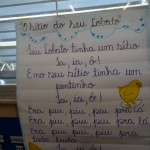 O Sítio do seu Lobato
Seu Lobato tinha um sítio
Ia, ia, ô!
E no seu sítio tinha um
pintinho
Ia, ia, ô!
Era piu, piu, piu pra lá
Era piu, piu, piu pra cá
Era piu, piu, piu pra